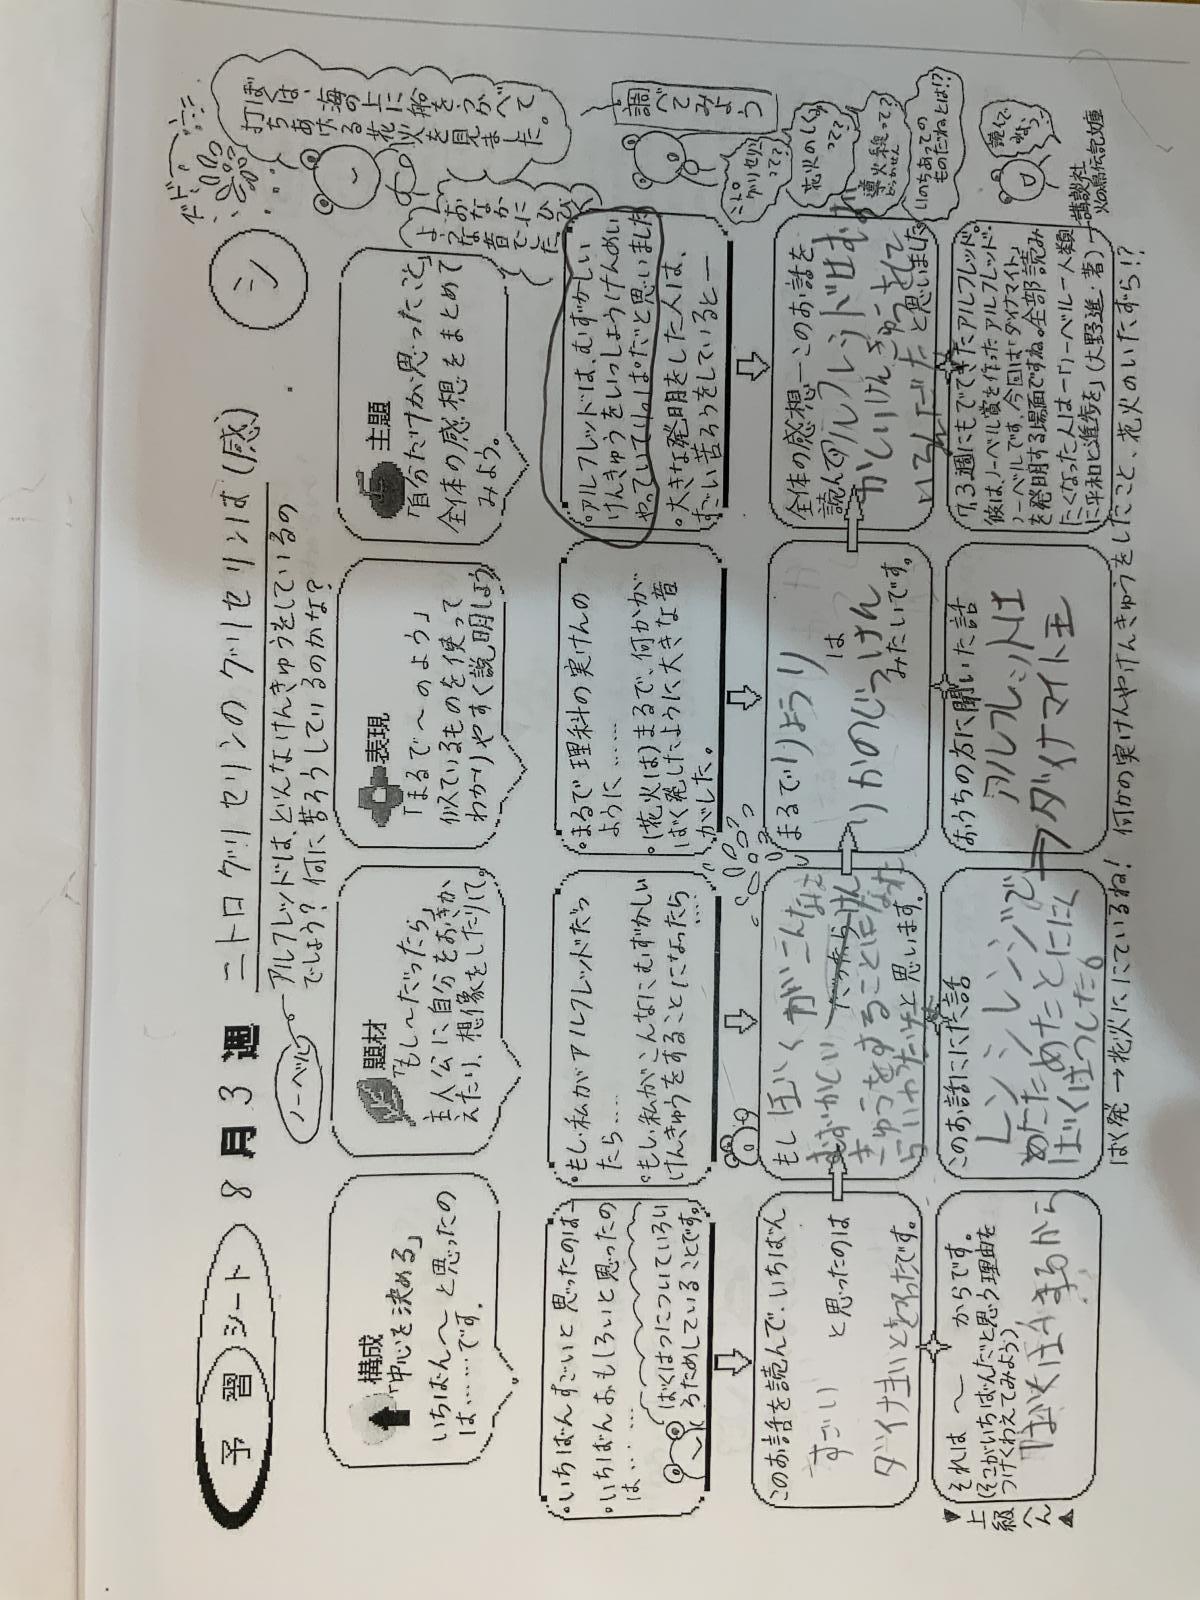 予習シート
8月3週
ニトログリセリンのグリセリンは(感)
シ
ノーベル
アルフレッドは、どんなけんきゅうをしているの
でしょう?何に苦ろうしているのかな?
ドドーン
ぼくは、海の上に船をうかべて
打ちあげる花火を見ました。
おなかにひびく
ような音でした
構成
「中心を決める」
いちばん〜と思ったの
は……です。
題材
「もし〜だったら」
主人公に自分をおきか
えたり、想像をしたりして。
表現
「まるで〜のよう」
似ているものを使って
わかりやすく説明しよう
主題
「自分だけが思ったこと」
全体の感想をまとめて
みよう。
・いちばんすごいと思ったのは…
・いちばんおもしろいと思ったの
は……
ばくはつについていろい
ろためしていることです。
・もし私がアルフレッドだっ
たら……
・もし私がこんなにむずかしい
けんきゅうをすることになったら……
・まるで理科の実けんの
ように……
・(花火は)まるで、何かが
ばく発したように大きな音
がした。
・アルフレッドは、むずかしい
けんきゅうをいっしょうけんめい
やっていてりっぱだと思いました
・大きな発明をした人は、
すごい苦ろうをしていると―
調べてみよう
ニトログリセリンって?
花火のしくみって?
導火線って?
どうかせん
いのちあってのものだねとは!?
読んでね
このお話を読んで、いちばん
すごい と思ったのは
ダイナまいとをつくったです。
もしぼくがこんなに
むずかしい
きゅうをすることになった
らいやだと思います。
まるでりょうり は
りかのじっけん みたいです。
全体の感想―このお話を
読んでアルフレッドはむず
かしいけんきゅうをして
いるんだ と思いました
上級へん
それは 〜 からです。
(そこがいちばんだと思う理由を
つけくわえてみよう)
このお話ににた話
レンジレンジで
あたためたとににく
ばくはつした。
おうちの方に聞いた話
アルフレッドは
ダイナマイト王
7、3週にもでてきたアルフレッド。
彼は、ノーベル賞を作ったアルフレッド・
ノーベルです。今回は「ダイナマイト」
を発明する場面ですね。全部読み
たくなった人は―「ノーベル―人類
に平和と進歩を」(大野進・著)―講談社
火の鳥伝記文庫
ばく発→花火ににているね! 何かの実けんやけんきゅうをしたこと、花火のいたずら!?